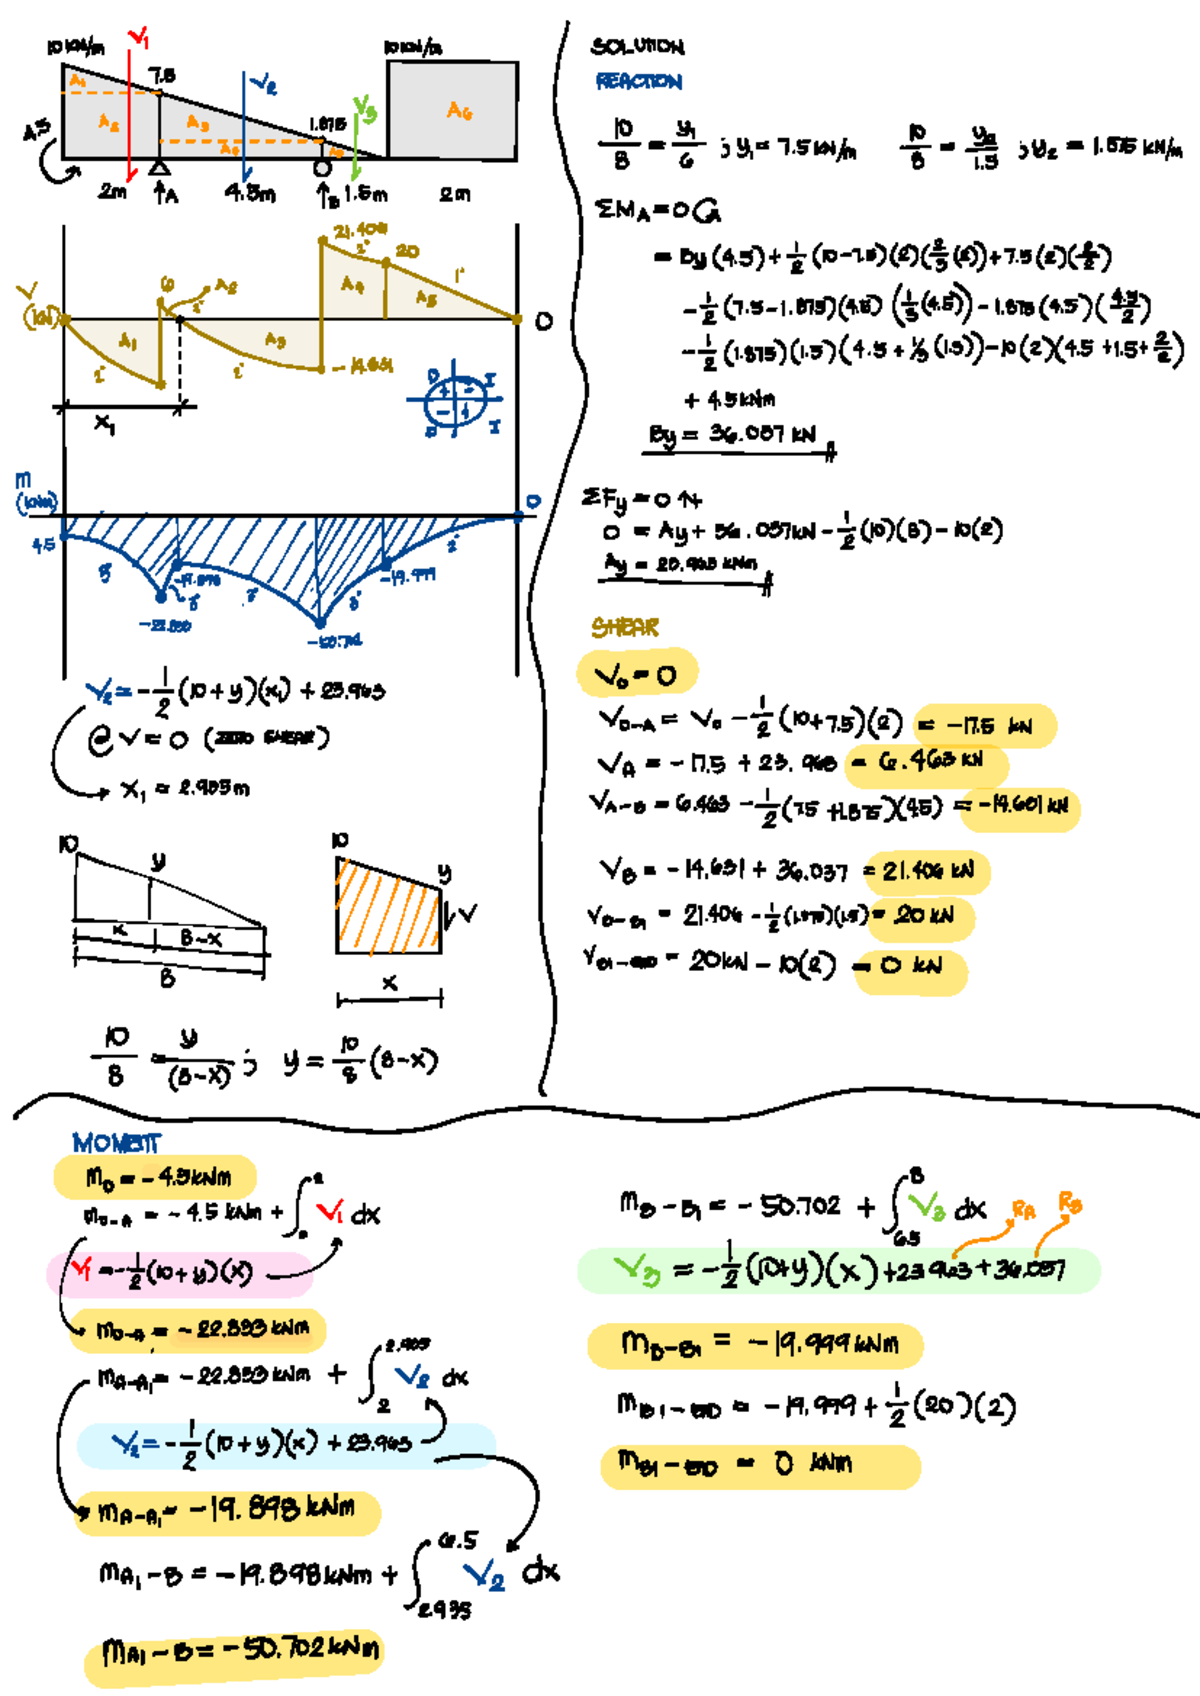 10 kN/m V₁ 10 kN/m
7.5 V₂ V₃
A₁ A₂ A₃ 1.875 A₆
2m ↑A 4.5m ↑B 1.5m 2m
V (kN) 21.406 20
2° 1° A₂ A₄ A₅ 0
A₁ A₃ -14.631
2° 2°
X₁
M (kNm) 0
4.5 3° -19.898 3° 3° -19.999 2°
-22.833 -50.702
V₂ = -1/2 (10+y)(x₁) + 23.963
@ V = 0 (ZERO SHEAR)
X₁ = 2.935m
10 y 10 y
x 8-x V
8 x
10/8 = y/(8-x) ; y = 10/8 (8-x)
SOLUTION
REACTION
10/8 = y₁/6 ; y₁ = 7.5 kN/m 10/8 = y₂/1.5 ; y₂ = 1.875 kN/m
ΣM_A = 0
= By (4.5) + 1/2 (10-7.5)(2)(2/3(2)) + 7.5(2)(2/2)
-1/2 (7.5-1.875)(4.5)(1/3(4.5)) - 1.875(4.5)(4.5/2)
-1/2 (1.875)(1.5)(4.5 + 1/3 (1.5)) - 10(2)(4.5 + 1.5 + 2/2)
+ 4.5 kNm
By = 36.037 kN
ΣFy = 0 ↑+
0 = Ay + 36.037kN - 1/2 (10)(8) - 10(2)
Ay = 23.963 kNm
SHEAR
V₀ = 0
V₀₋A = V₀ - 1/2 (10+7.5)(2) = -17.5 kN
V_A = -17.5 + 23.963 = 6.463 kN
V_A-B = 6.463 - 1/2 (7.5+1.875)(4.5) = -14.631 kN
V_B = -14.631 + 36.037 = 21.406 kN
V_B-B1 = 21.406 - 1/2 (1.875)(1.5) = 20 kN
V_B1-END = 20kN - 10(2) = 0 kN
MOMENT
M₀ = -4.5 kNm
M₀₋A = -4.5 kNm + ∫₀² V₁ dx
V₁ = -1/2 (10+y)(x)
M₀₋A = -22.833 kNm
M_A-A₁ = -22.833 kNm + ∫₂^2.935 V₂ dx
V₂ = -1/2 (10+y)(x) + 23.963
M_A-A₁ = -19.898 kNm
M_A₁-B = -19.898 kNm + ∫_2.935^6.5 V₂ dx
M_A1-B = -50.702 kNm
M_B-B₁ = -50.702 + ∫_6.5^8 V₃ dx R_A R_B
V₃ = -1/2 (10+y)(x) + 23.963 + 36.037
M_B-B1 = -19.999 kNm
M_B1-END = -19.999 + 1/2 (20)(2)
M_B1-END = 0 kNm